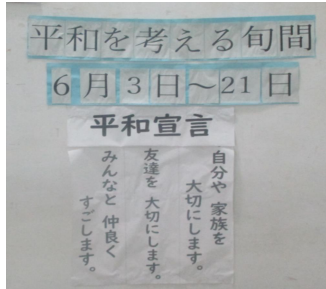 平和を考える旬間
6月3日~21日
平和宣言
自分や 家族を
大切にします。
友達を 大切にします。
みんなと 仲良く
すごします。